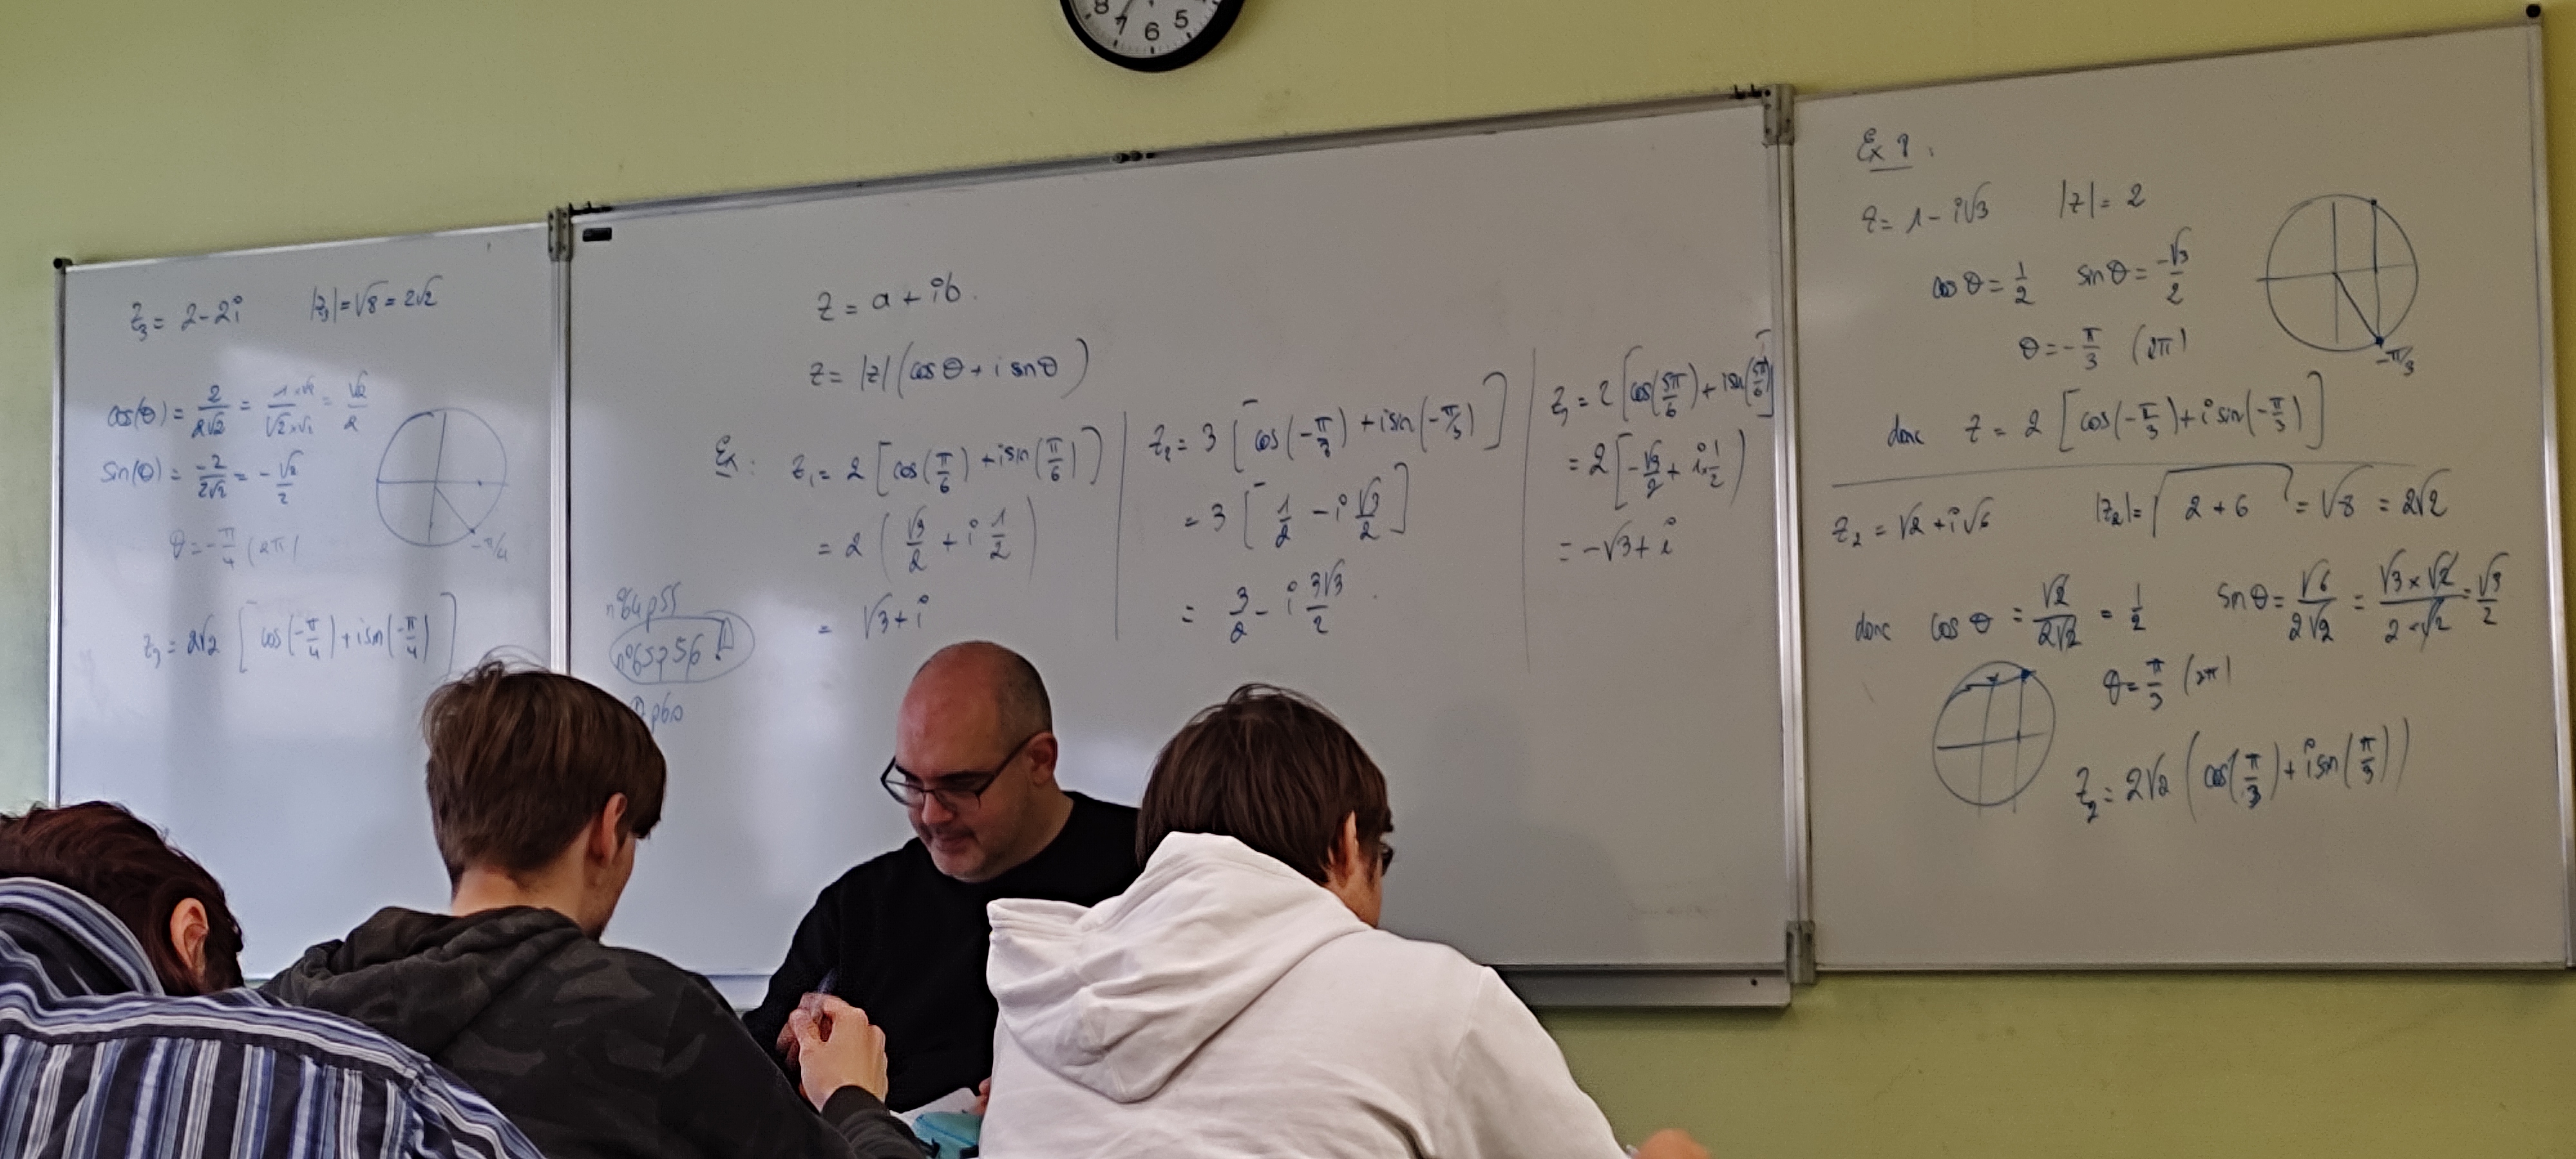 8 7 6 5
z₃ = 2-2i |z₃| = √8 = 2√2
cos(θ) = 2/2√2 = 1×√2/√2×√2 = √2/2
sin(θ) = -2/2√2 = -√2/2
θ = -π/4 (2π)
-π/4
z₃ = 2√2 [cos(-π/4) + i sin(-π/4)]
z = a + ib.
z = |z| (cos θ + i sin θ)
Ex : z₁ = 2 [cos(π/6) + i sin(π/6)]
= 2 (√3/2 + i 1/2)
= √3 + i
n°64 p55
n°65 p56 !
p60
z₂ = 3 [cos(-π/3) + i sin(-π/3)]
= 3 [1/2 - i √3/2]
= 3/2 - i 3√3/2
z₃ = 2 [cos(5π/6) + i sin(5π/6)]
= 2 [-√3/2 + i×1/2)
= -√3 + i
Ex 1 :
z = 1 - i√3 |z| = 2
cos θ = 1/2 sin θ = -√3/2
θ = -π/3 (2π)
-π/3
donc z = 2 [cos(-π/3) + i sin(-π/3)]
z₂ = √2 + i√6 |z₂| = √2 + 6 = √8 = 2√2
donc cos θ = √2/2√2 = 1/2 sin θ = √6/2√2 = √3×√2/2×√2 = √3/2
θ = π/3 (2π)
z₂ = 2√2 (cos(π/3) + i sin(π/3))